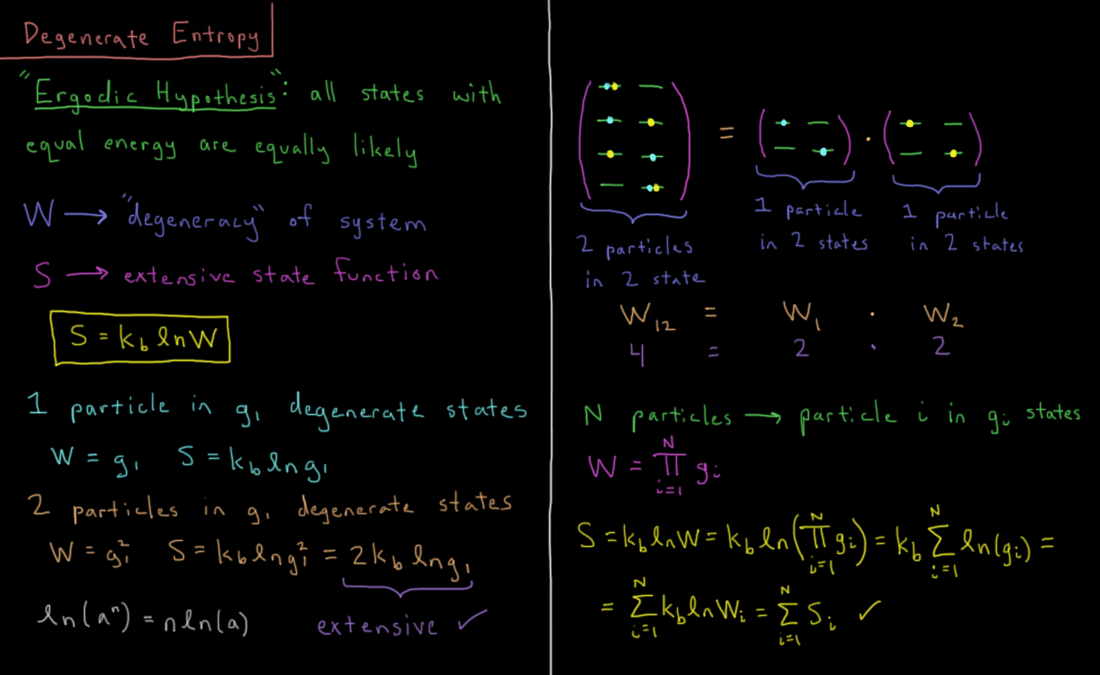 Degenerate Entropy
"Ergodic Hypothesis": all states with
equal energy are equally likely
W → "degeneracy" of system
S → extensive state function
S = k_b ln W
1 particle in g₁ degenerate states
W = g₁ S = k_b ln g₁
2 particles in g₁ degenerate states
W = g₁² S = k_b ln g₁² = 2k_b ln g₁
ln(aⁿ) = n ln(a) extensive ✓
= ·
2 particles
in 2 state
1 particle
in 2 states
1 particle
in 2 states
W₁₂ = W₁ · W₂
4 = 2 · 2
N particles → particle i in gᵢ states
W = ∏_{i=1}^{N} gᵢ
S = k_b ln W = k_b ln(∏_{i=1}^{N} gᵢ) = k_b ∑_{i=1}^{N} ln(gᵢ) =
= ∑_{i=1}^{N} k_b ln Wᵢ = ∑_{i=1}^{N} Sᵢ ✓